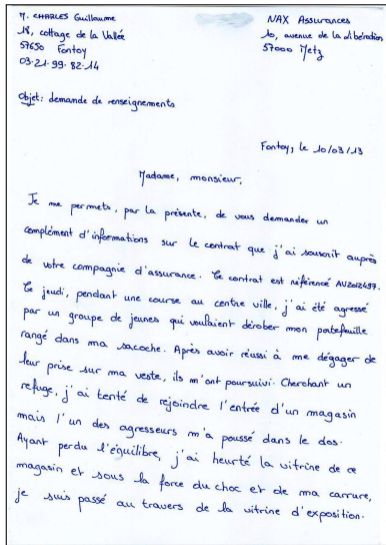 M. CHARLES Guillaume
18, cottage de la Vallée
57650 Fontoy
03.21.99.82.14
NAX Assurances
10, avenue de la libération
57000 Metz
Objet: demande de renseignements
Fontoy, le 10/03/13
Madame, monsieur,
Je me permets, par la présente, de vous demander un
complément d'informations sur le contrat que j'ai souscrit auprès
de votre compagnie d'assurance. Ce contrat est référencé AU2012697.
Ce jeudi, pendant une course au centre ville, j'ai été agressé
par un groupe de jeunes qui voulaient dérober mon portefeuille
rangé dans ma sacoche. Après avoir réussi à me dégager de
leur prise sur ma veste, ils m'ont poursuivi. Cherchant un
refuge, j'ai tenté de rejoindre l'entrée d'un magasin
mais l'un des agresseurs m'a poussé dans le dos.
Ayant perdu l'équilibre, j'ai heurté la vitrine de ce
magasin et sous la force du choc et de ma carrure,
je suis passé au travers de la vitrine d'exposition.